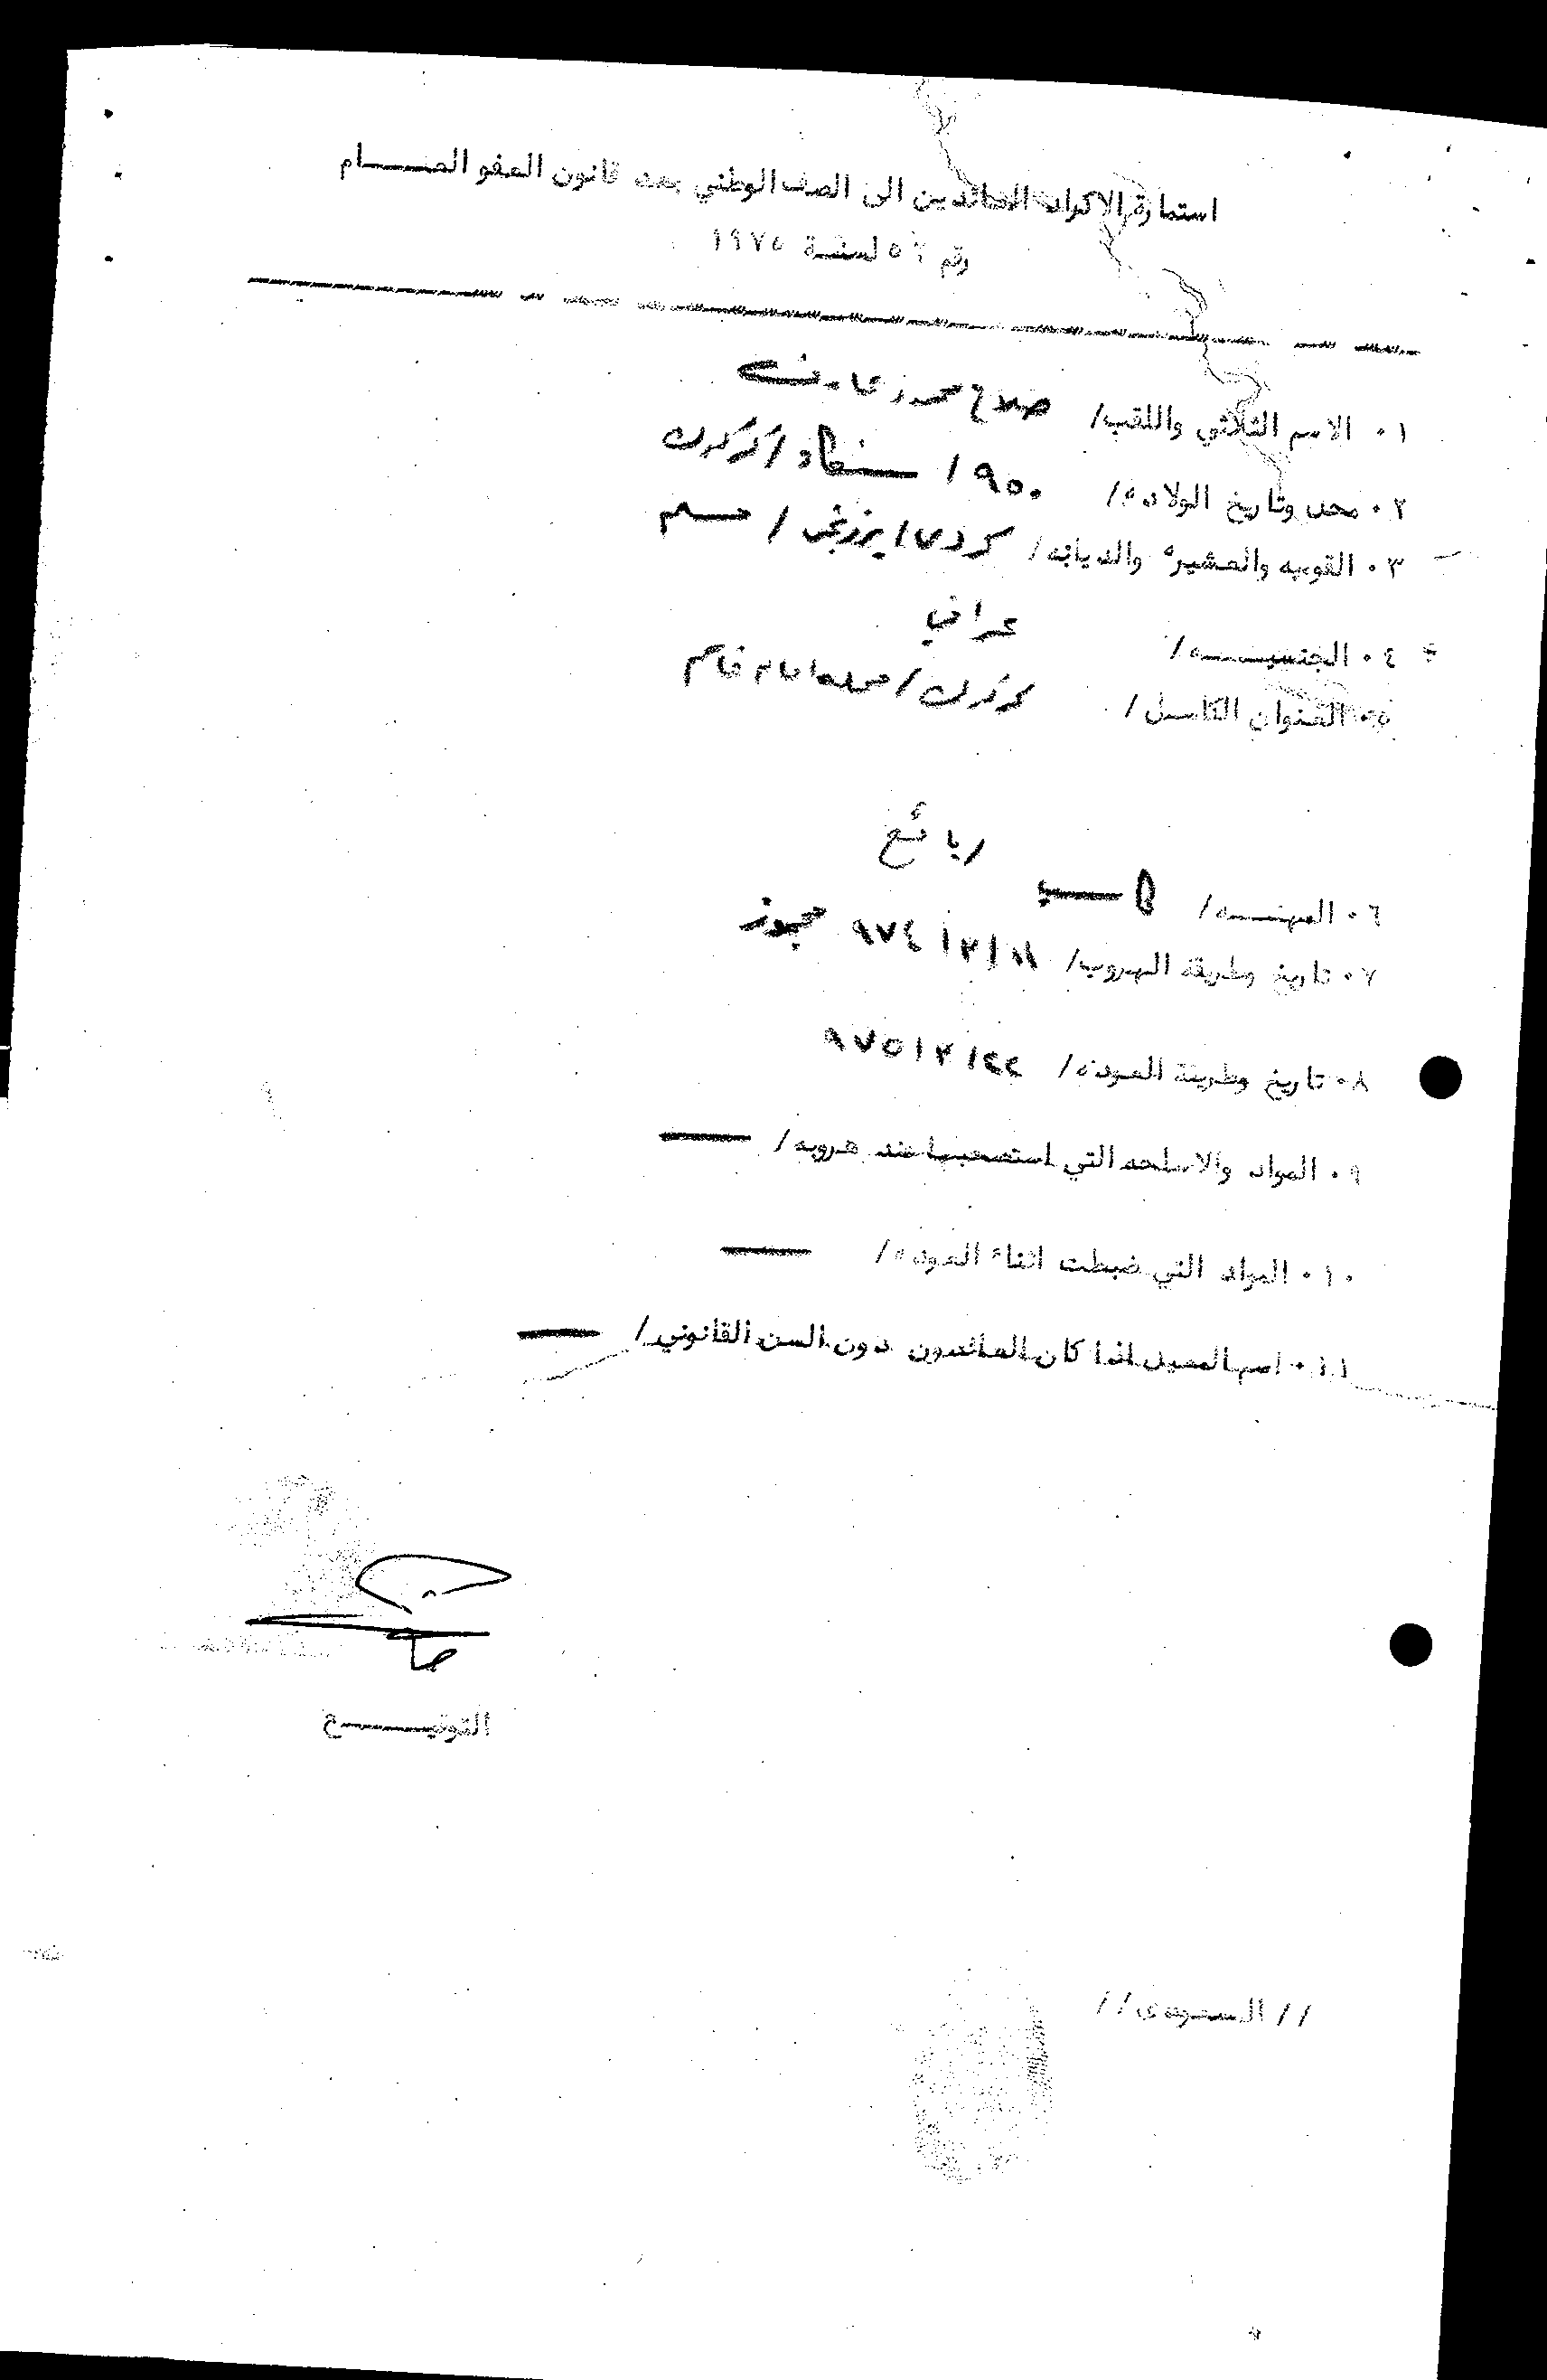 استمارة الاكراد العائدين الى الصف الوطني بعد قانون العفو العــــام
رقم ٥٦ لسنة ١٩٧٥
٠١ الاسم الثلاثي واللقب/ صلاح محمود عارف
٠٢ محل وتاريخ الولاده/ ١٩٥٠ / كركوك
٠٣ القوميه والعشيره والديانه/ كردي / برزنجي / مسلم
٠٤ الجنسيــــه/ عراقي
٠٥ العنوان الكامــل/ كركوك / محله امام قاسم
٠٦ المهنــــه/
٠٧ تاريخ وطريقة الهروب/ ٩٧٤/٣/١١
٠٨ تاريخ وطريقة العوده/ ٩٧٥/٣/٢٢
٠٩ المواد والاسلحه التي استصحبها عند هروبه/ ——
٠١٠ المواد التي ضبطت اثناء العوده/ ——
٠١١ اسم المعيل اذا كان العائدون دون السن القانوني/ ——
التوقيـــــع